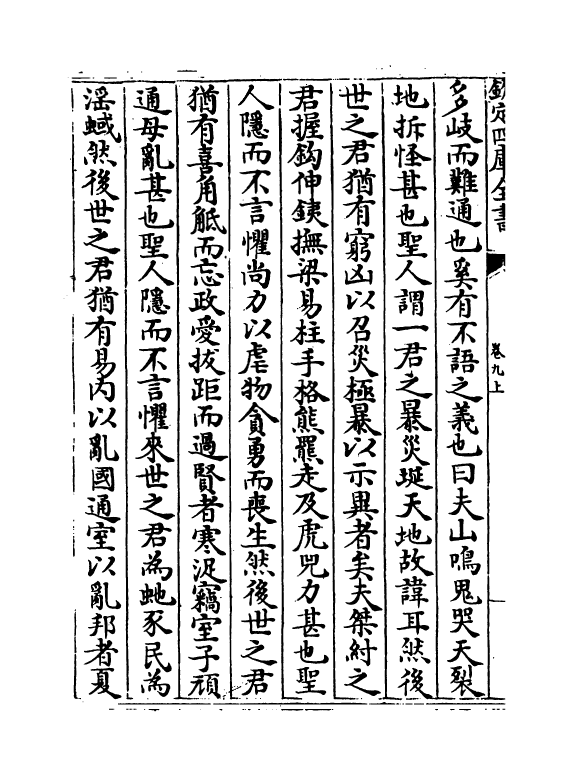 欽定四庫全書
卷九上
多岐而難通也奚有不語之義也曰夫山鳴鬼哭天裂
地拆怪甚也聖人謂一君之暴災埏天地故諱耳然後
世之君猶有窮凶以召災極暴以示異者矣夫桀紂之
君握鈎伸鐵撫梁易柱手格熊羆走及虎兕力甚也聖
人隱而不言懼尚力以虐物貪勇而喪生然後世之君
猶有喜角觝而忘政愛拔距而過賢者寒浞竊室子頑
通母亂甚也聖人隱而不言懼來世之君為虵豕民為
淫蜮然後世之君猶有易內以亂國通室以亂邦者夏